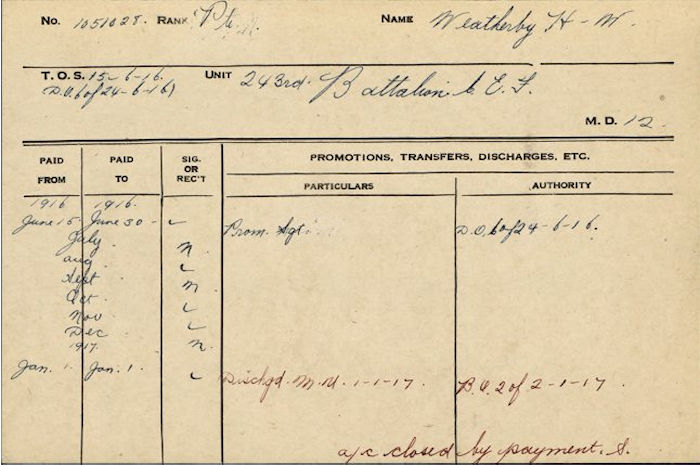 No. 1051028. RANK Pte. NAME Weatherby H - W.
T.O.S. 15-6-16. UNIT 243rd. Battalion C.E.F.
D.O. 6 of 24-6-16)
M.D. 12.
PAID FROM PAID TO SIG. OR REC'T PROMOTIONS, TRANSFERS, DISCHARGES, ETC.
PARTICULARS AUTHORITY
1916 1916.
June 15- June 30- Prom. Sgt. D.O. 6 of 24-6-16.
July n.
aug
Sept n.
Oct.
Nov.
Dec
1917. n.
Jan. 1. Jan. 1. Dischgd. M.U. 1-1-17. 2 of 2-1-17.
a/c closed by payment. S.